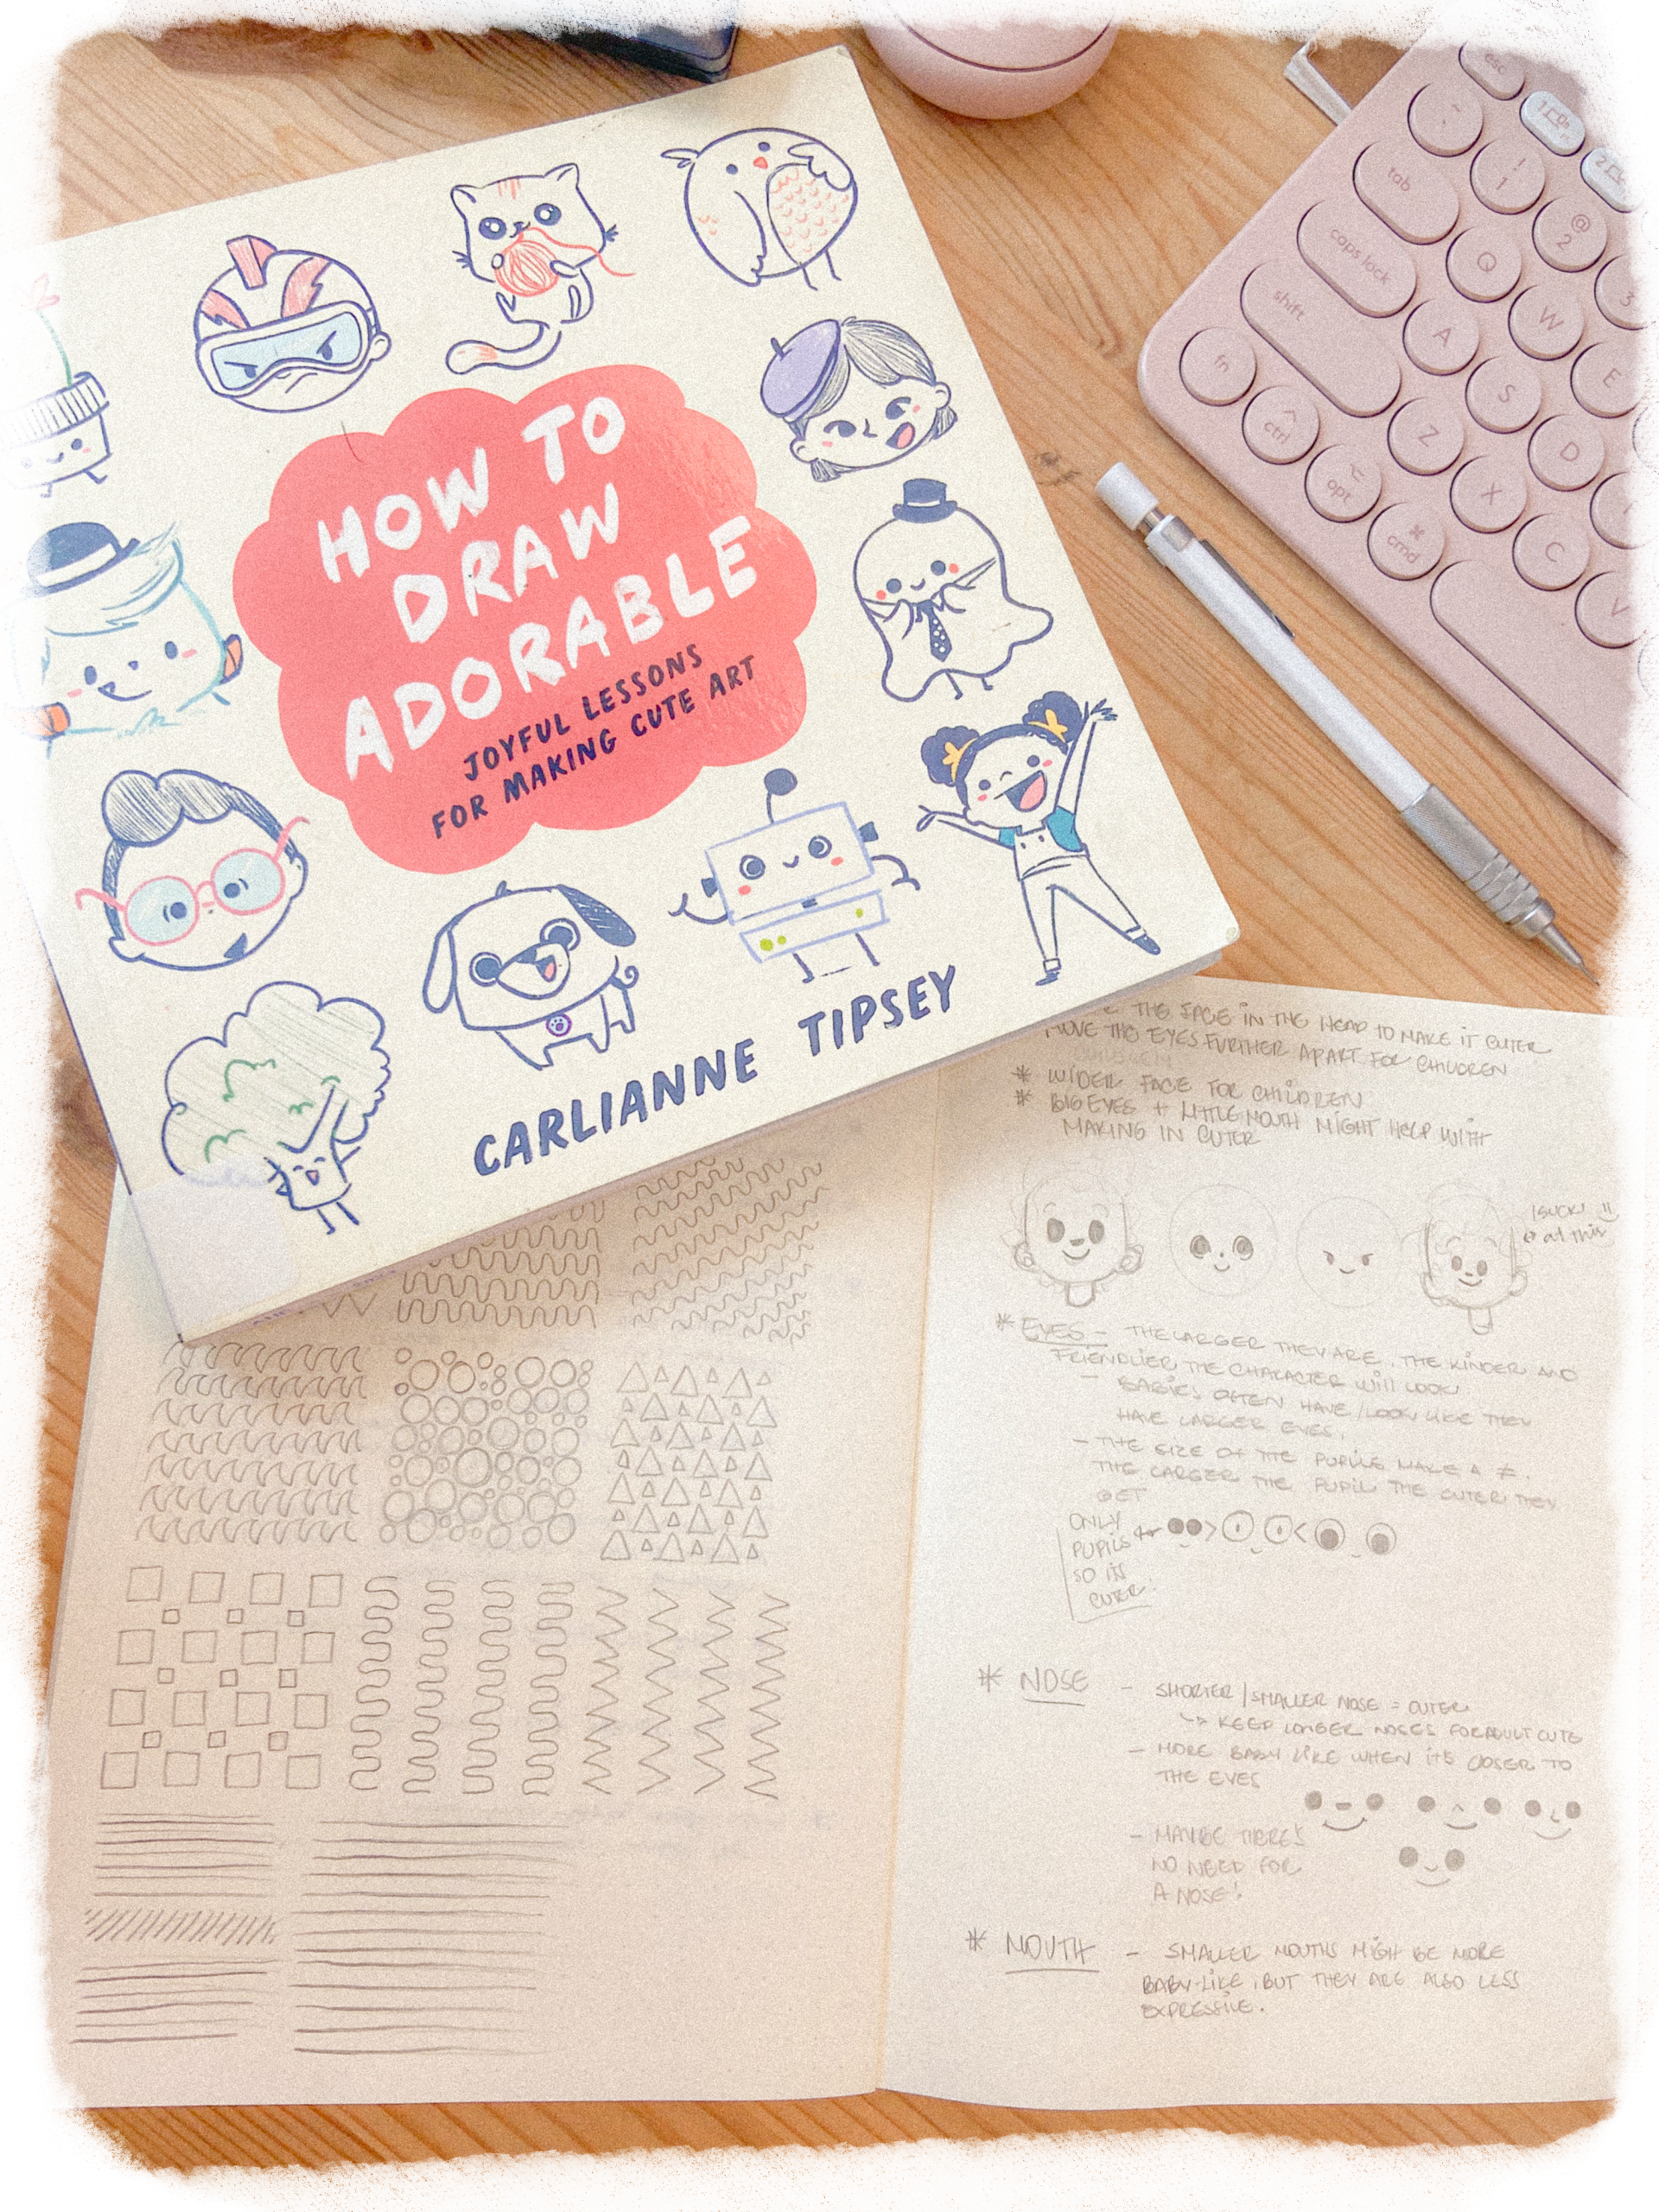 HOW TO
DRAW
ADORABLE
JOYFUL LESSONS
FOR MAKING CUTE ART
CARLIANNE TIPSEY
esc
tab
caps lock
shift
fn
ctrl
opt
cmd
!
1
@
2
3
Q
W
E
A
S
D
Z
X
C
V
THE FACE IN THE HEAD TO MAKE IT CUTER
MOVE THE EYES FURTHER APART FOR CHILDREN
* WIDER FACE FOR CHILDREN
* BIG EYES + LITTLE MOUTH MIGHT HELP WITH
MAKING IN CUTER
I SUCK
at this
* EYES - THE LARGER THEY ARE, THE KINDER AND
FRIENDLIER THE CHARACTER WILL LOOK
- BABIES OFTEN HAVE/LOOK LIKE THEY
HAVE LARGER EYES.
- THE SIZE OF THE PUPILS MAKE A ≠.
THE LARGER THE PUPIL THE CUTER THEY
GET
ONLY
PUPILS
SO IS
CUTER.
* NOSE - SHORTER/SMALLER NOSE = CUTER
↳ KEEP LONGER NOSES FOR ADULT CUTE
- MORE BABY LIKE WHEN IT'S CLOSER TO
THE EYES
- MAYBE THERE'S
NO NEED FOR
A NOSE!
* MOUTH - SMALLER MOUTHS MIGH BE MORE
BABY-LIKE, BUT THEY ARE ALSO LESS
EXPRESSIVE.